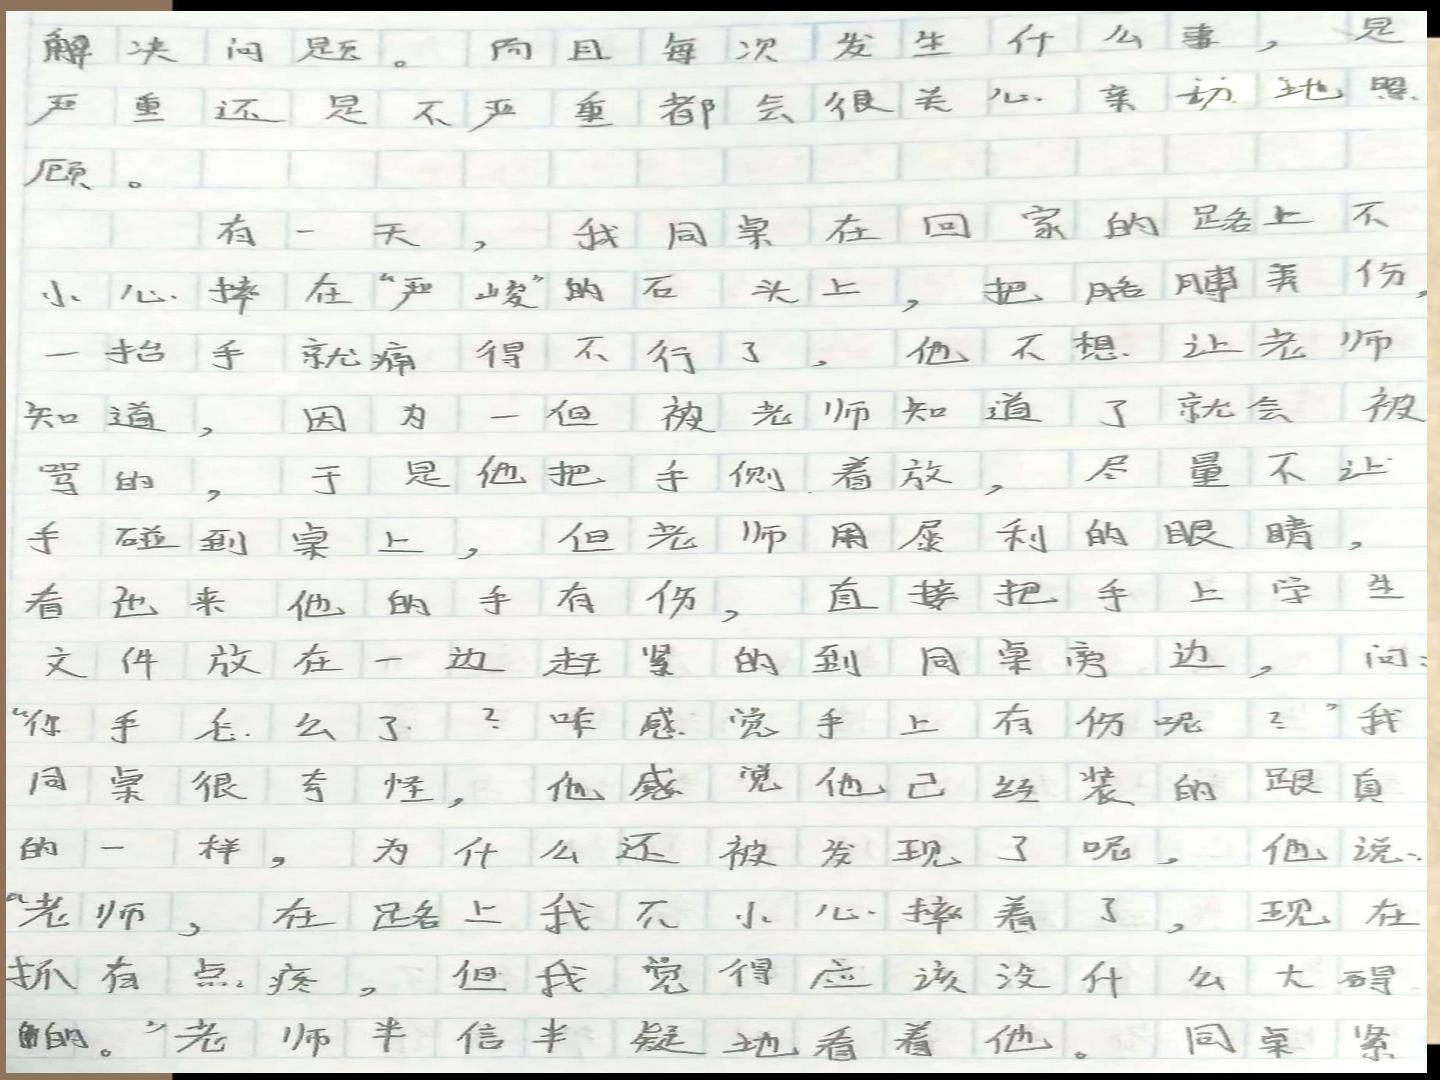 解决问题。而且每次发生什么事，是
严重还是不严重都会很关心亲切地照
顾。
有一天，我同桌在回家的路上不
小心摔在“严峻”的石头上，把胳膊弄伤，
一抬手就痛得不行了，他不想让老师
知道，因为一但被老师知道了就会被
骂的，于是他把手侧着放，尽量不让
手碰到桌上，但老师用犀利的眼睛，
看出来他的手有伤，直接把手上学生
文件放在一边赶紧的到同桌旁边，问：
“你手怎么了？咋感觉手上有伤呢？”我
同桌很奇怪，他感觉他已经装的跟真
的一样，为什么还被发现了呢，他说：
“老师，在路上我不小心摔着了，现在
抓有点疼，但我觉得应该没什么大碍
的。”老师半信半疑地看着他。同桌紧